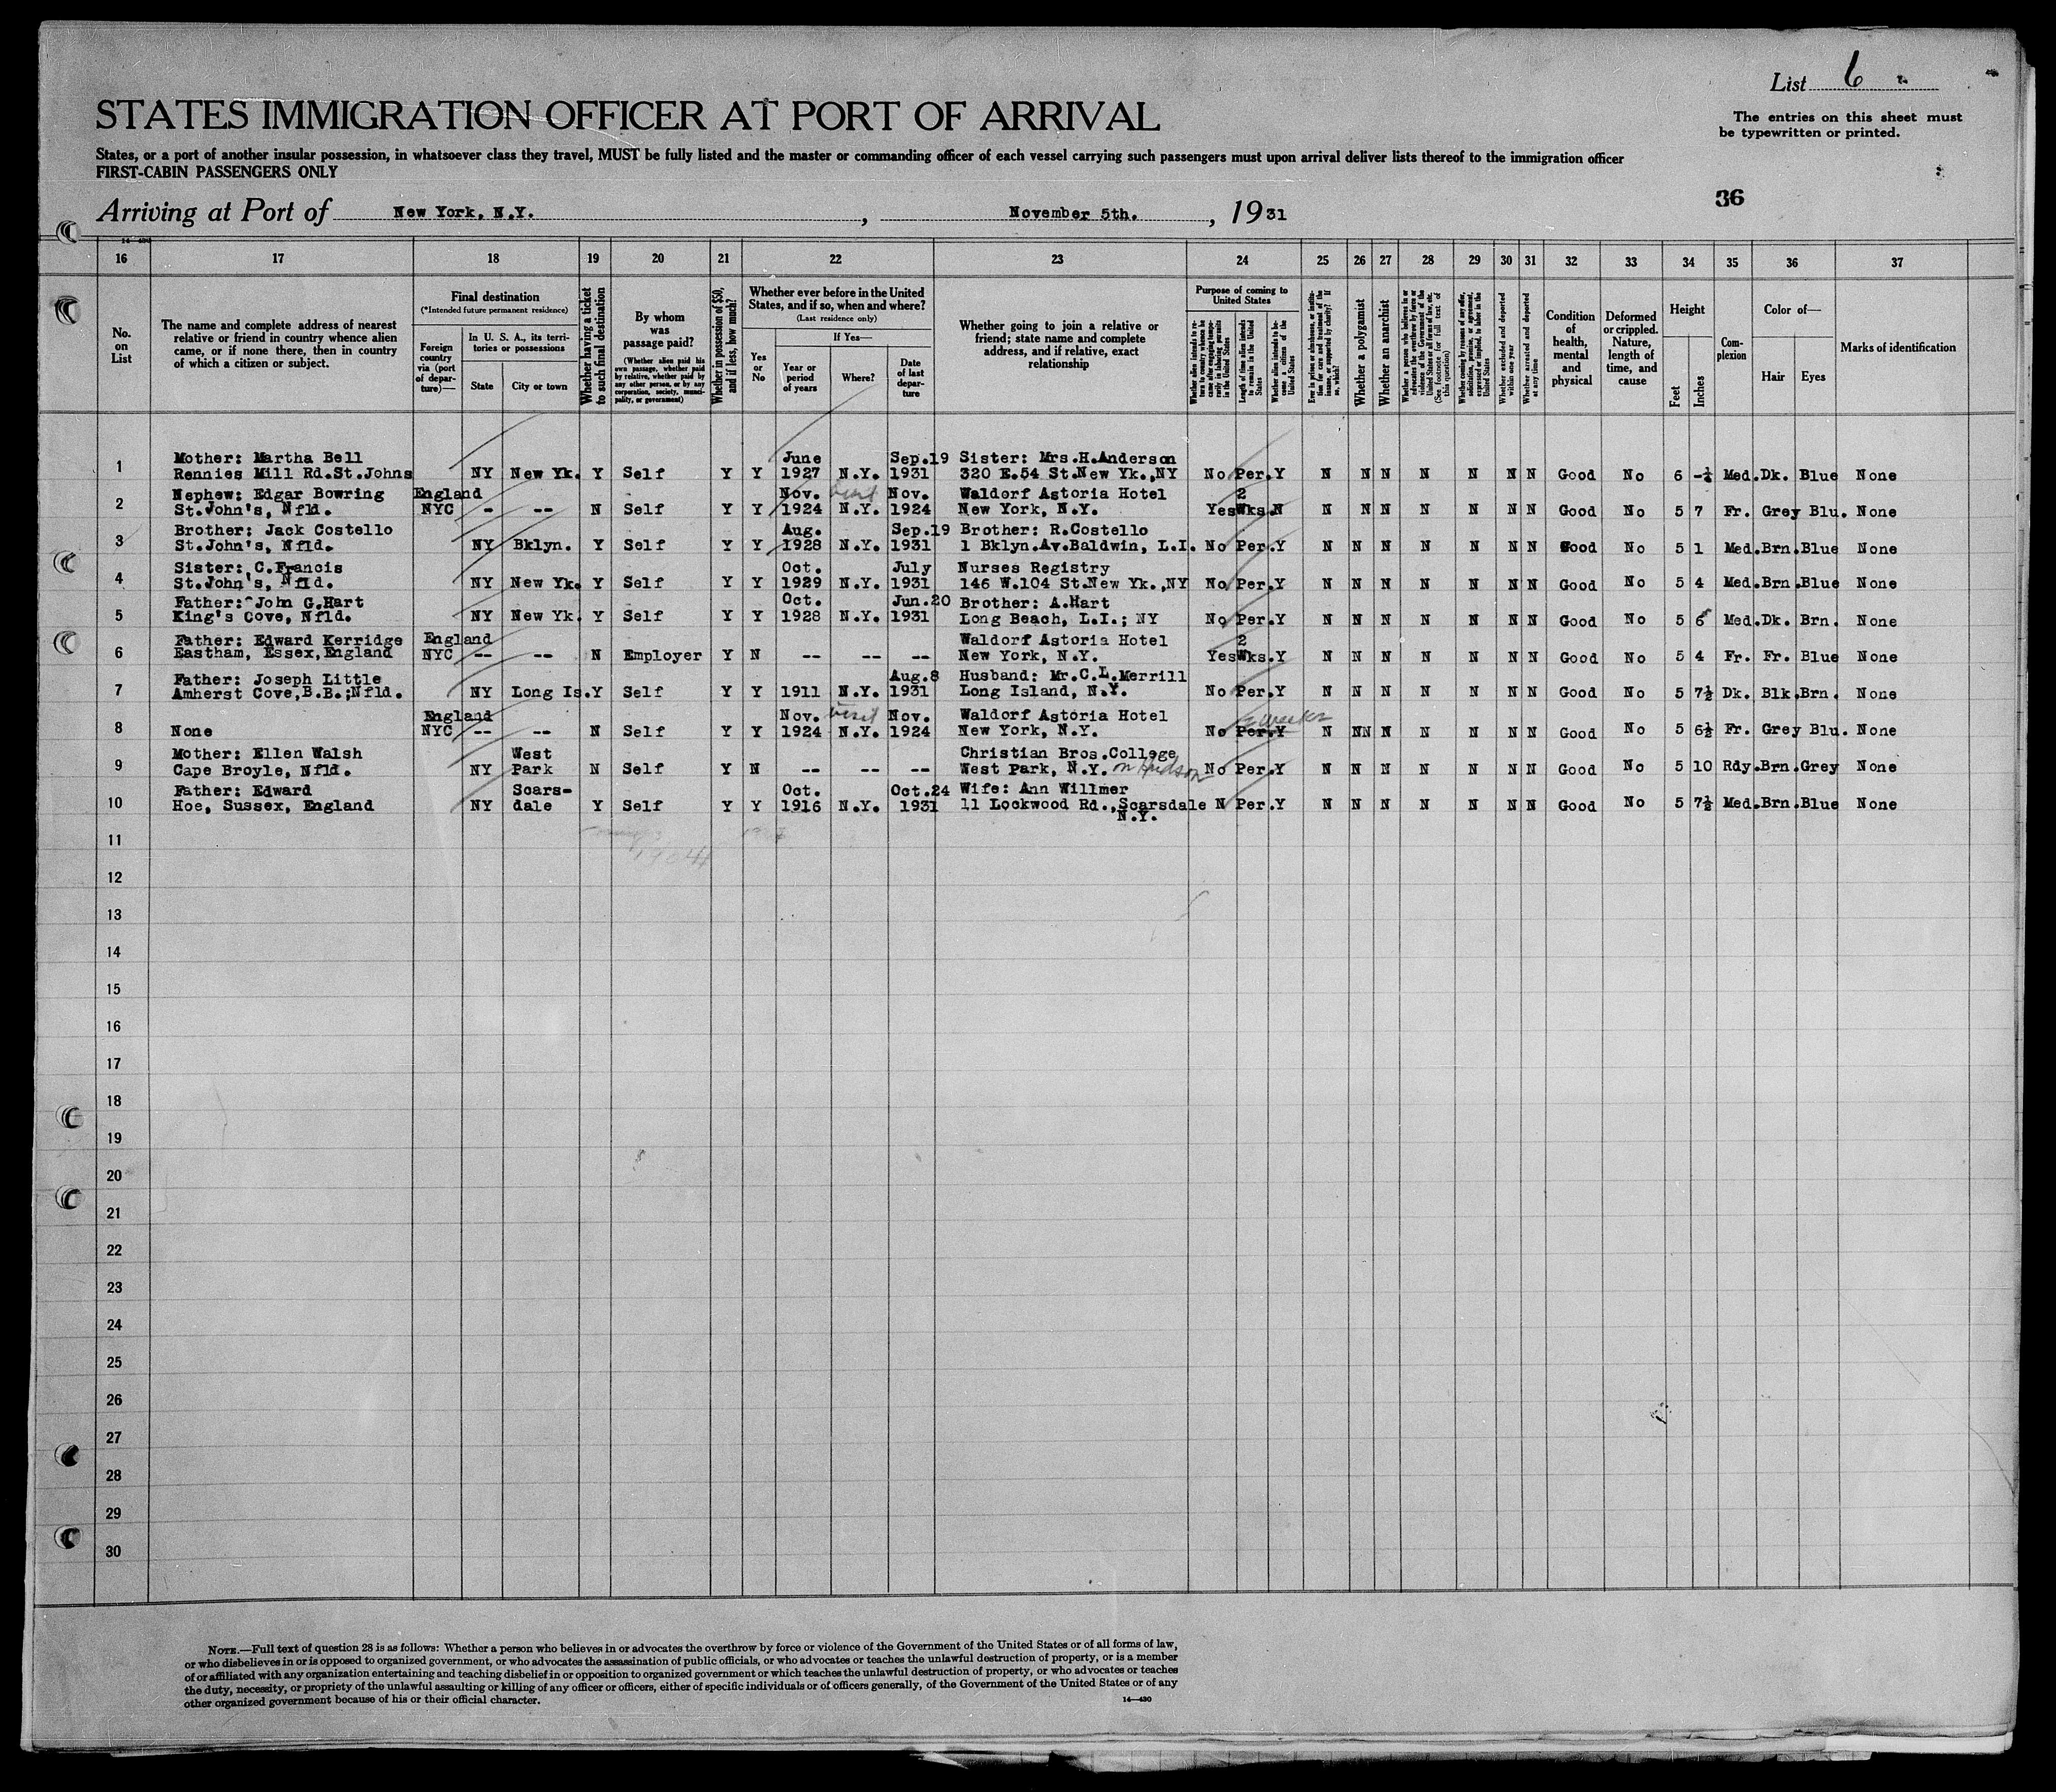 List 6
The entries on this sheet must
be typewritten or printed.
STATES IMMIGRATION OFFICER AT PORT OF ARRIVAL
States, or a port of another insular possession, in whatsoever class they travel, MUST be fully listed and the master or commanding officer of each vessel carrying such passengers must upon arrival deliver lists thereof to the immigration officer
FIRST-CABIN PASSENGERS ONLY
36
Arriving at Port of New York, N.Y. , November 5th. , 1931
16 17 18 19 20 21 22 23 24 25 26 27 28 29 30 31 32 33 34 35 36 37
No. on List
The name and complete address of nearest relative or friend in country whence alien came, or if none there, then in country of which a citizen or subject.
Final destination
(*Intended future permanent residence)
Foreign country via (port of departure)—
In U. S. A., its territories or possessions
State
City or town
Whether having a ticket to such final destination
By whom was passage paid?
(Whether alien paid his own passage, whether paid by relative, whether paid by any other person, or by any corporation, society, municipality, or government)
Whether in possession of $50, and if less, how much?
Whether ever before in the United States, and if so, when and where?
(Last residence only)
Yes or No
If Yes—
Year or period of years
Where?
Date of last departure
Whether going to join a relative or friend; state name and complete address, and if relative, exact relationship
Purpose of coming to United States
Whether alien intends to return to country whence he came after engaging temporarily in laboring pursuits in the United States
Length of time alien intends to remain in the United States
Whether alien intends to become a citizen of the United States
Ever in prison or almshouse, or institution for care and treatment of the insane, or supported by charity? If so, which?
Whether a polygamist
Whether an anarchist
Whether a person who believes in or advocates the overthrow by force or violence of the Government of the United States or all forms of law, etc. (See footnote for full text of this question)
Whether coming by reason of any offer, solicitation, promise, or agreement, expressed or implied, to labor in the United States
Whether excluded and deported within one year
Whether arrested and deported at any time
Condition of health, mental and physical
Deformed or crippled. Nature, length of time, and cause
Height
Feet
Inches
Complexion
Color of—
Hair
Eyes
Marks of identification
Mother: Martha Bell June Sep.19 Sister: Mrs.H.Anderson
1 Rennies Mill Rd.St.Johns NY New Yk. Y Self Y Y 1927 N.Y. 1931 320 E.54 St.New Yk.,NY No Per. Y N N N N N N N Good No 6 -¼ Med. Dk. Blue None
Nephew: Edgar Bowring England Nov. visit Nov. Waldorf Astoria Hotel 2
2 St.John's, Nfld. NYC - -- N Self Y Y 1924 N.Y. 1924 New York, N.Y. Yes Wks. N N N N N N N N Good No 5 7 Fr. Grey Blu. None
Brother: Jack Costello Aug. Sep.19 Brother: R.Costello
3 St.John's, Nfld. NY Bklyn. Y Self Y Y 1928 N.Y. 1931 1 Bklyn.Av.Baldwin, L.I. No Per. Y N N N N N N N Good No 5 1 Med. Brn. Blue None
Sister: C.Francis Oct. July Nurses Registry
4 St.John's, Nfld. NY New Yk. Y Self Y Y 1929 N.Y. 1931 146 W.104 St.New Yk.,NY No Per. Y N N N N N N N Good No 5 4 Med. Brn. Blue None
Father: John G.Hart Oct. Jun.20 Brother: A.Hart
5 King's Cove, Nfld. NY New Yk. Y Self Y Y 1928 N.Y. 1931 Long Beach, L.I.; NY No Per. Y N N N N N N N Good No 5 6 Med. Dk. Brn. None
Father: Edward Kerridge England Waldorf Astoria Hotel 2
6 Eastham, Essex,England NYC -- -- N Employer Y N -- -- -- New York, N.Y. Yes Wks. Y N N N N N N N Good No 5 4 Fr. Fr. Blue None
Father: Joseph Little Aug.8 Husband: Mr.C.L.Merrill
7 Amherst Cove,B.B.;Nfld. NY Long Is. Y Self Y Y 1911 N.Y. 1931 Long Island, N.Y. No Per. Y N N N N N N N Good No 5 7½ Dk. Blk. Brn. None
England Nov. visit Nov. Waldorf Astoria Hotel 2 weeks
8 None NYC -- -- N Self Y Y 1924 N.Y. 1924 New York, N.Y. No Per. Y N NN N N N N N Good No 5 6½ Fr. Grey Blu. None
Mother: Ellen Walsh West Christian Bros.College
9 Cape Broyle, Nfld. NY Park N Self Y N -- -- -- West Park, N.Y. on Hudson No Per. Y N N N N N N N Good No 5 10 Rdy. Brn. Grey None
Father: Edward Scars- Oct. Oct.24 Wife: Ann Willmer
10 Hoe, Sussex, England NY dale Y Self Y Y 1916 N.Y. 1931 11 Lockwood Rd.,Scarsdale N Per. Y N N N N N N N Good No 5 7½ Med. Brn. Blue None
N.Y.
11
12
13
14
15
16
17
18
19
20
21
22
23
24
25
26
27
28
29
30
NOTE.—Full text of question 28 is as follows: Whether a person who believes in or advocates the overthrow by force or violence of the Government of the United States or of all forms of law,
or who disbelieves in or is opposed to organized government, or who advocates the assassination of public officials, or who advocates or teaches the unlawful destruction of property, or is a member
of or affiliated with any organization entertaining and teaching disbelief in or opposition to organized government or which teaches the unlawful destruction of property, or who advocates or teaches
the duty, necessity, or propriety of the unlawful assaulting or killing of any officer or officers, either of specific individuals or of officers generally, of the Government of the United States or of any
other organized government because of his or their official character.
14—430